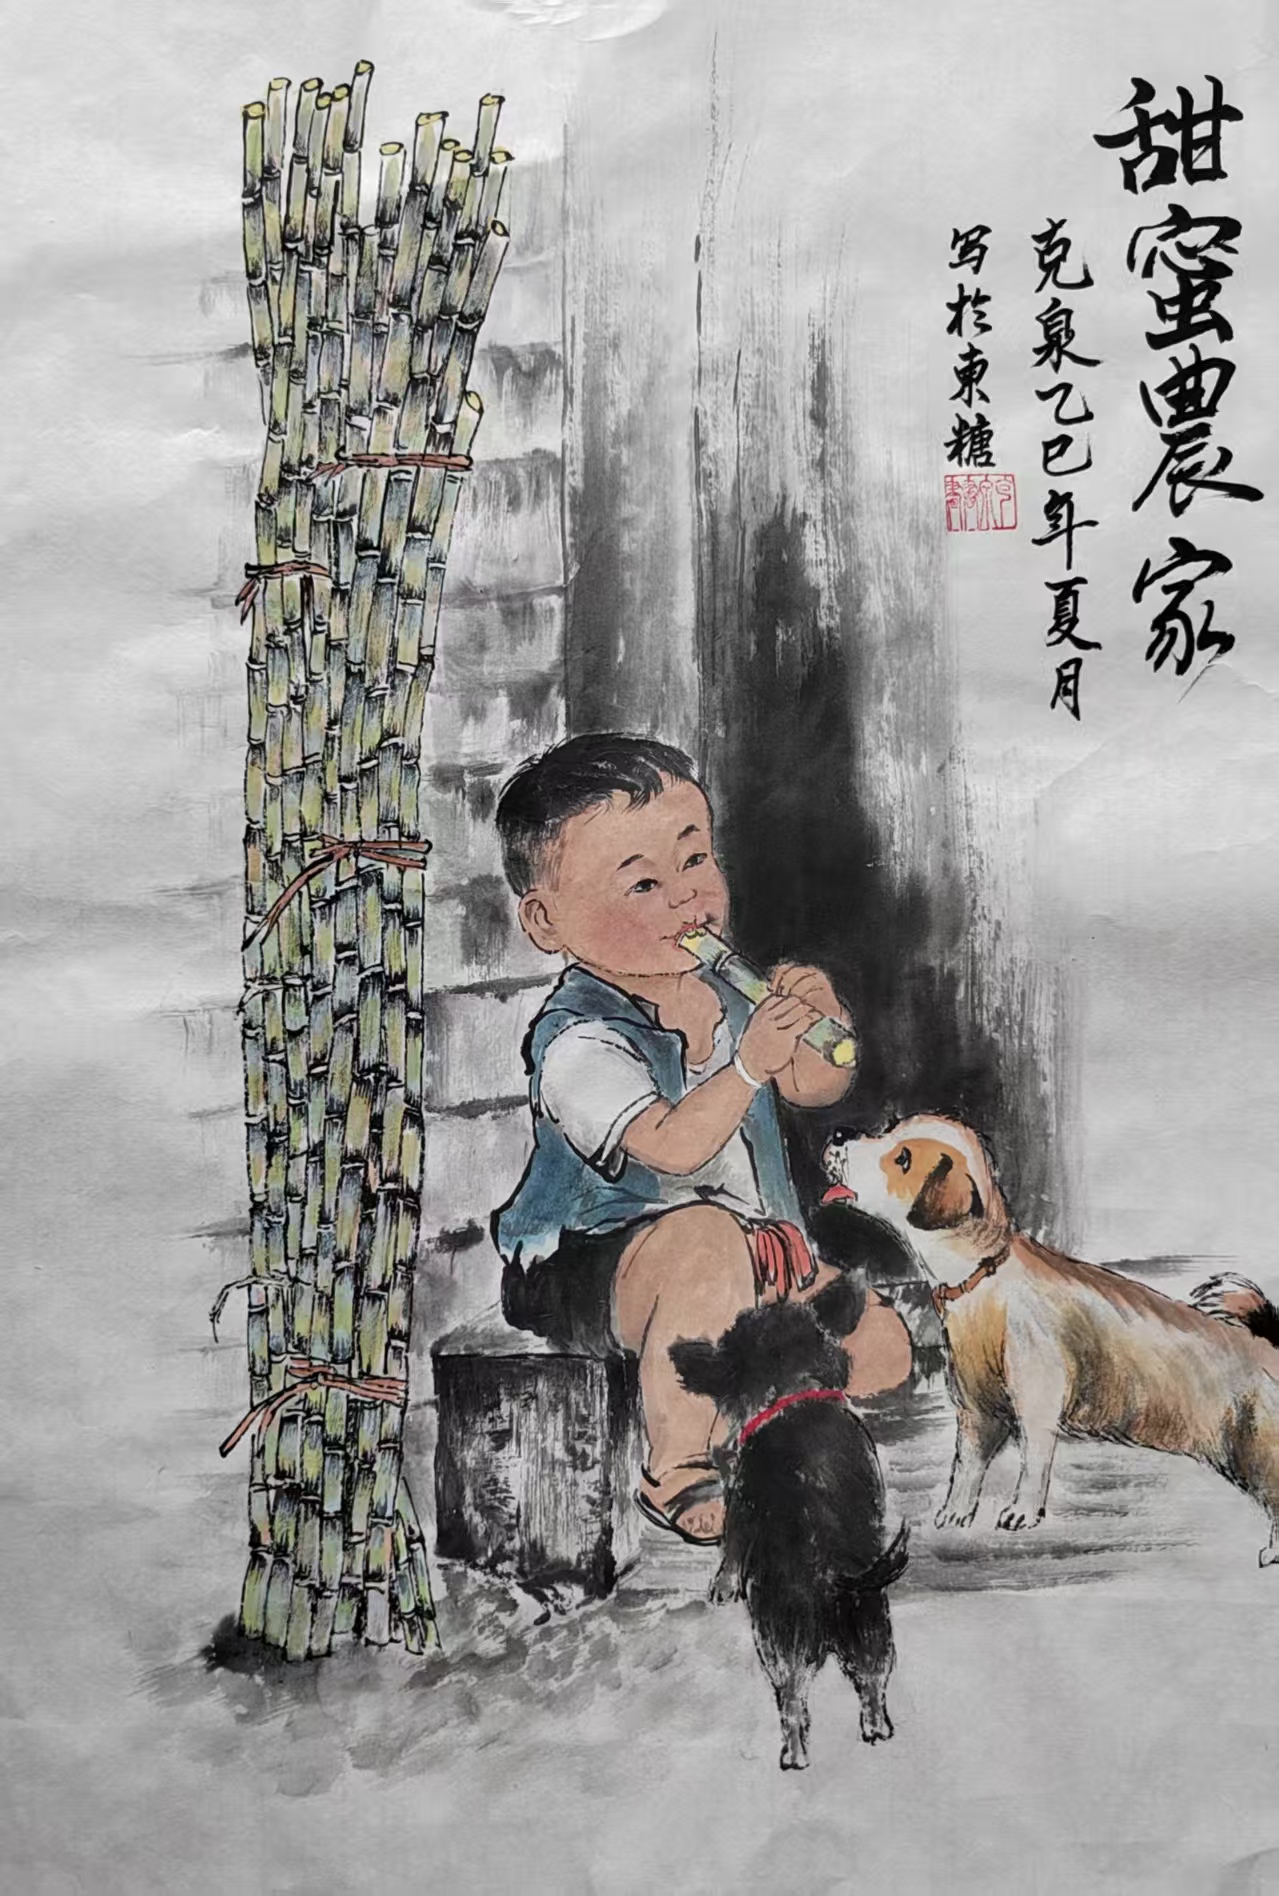 甜蜜農家
克泉乙巳年夏月
写於東糖